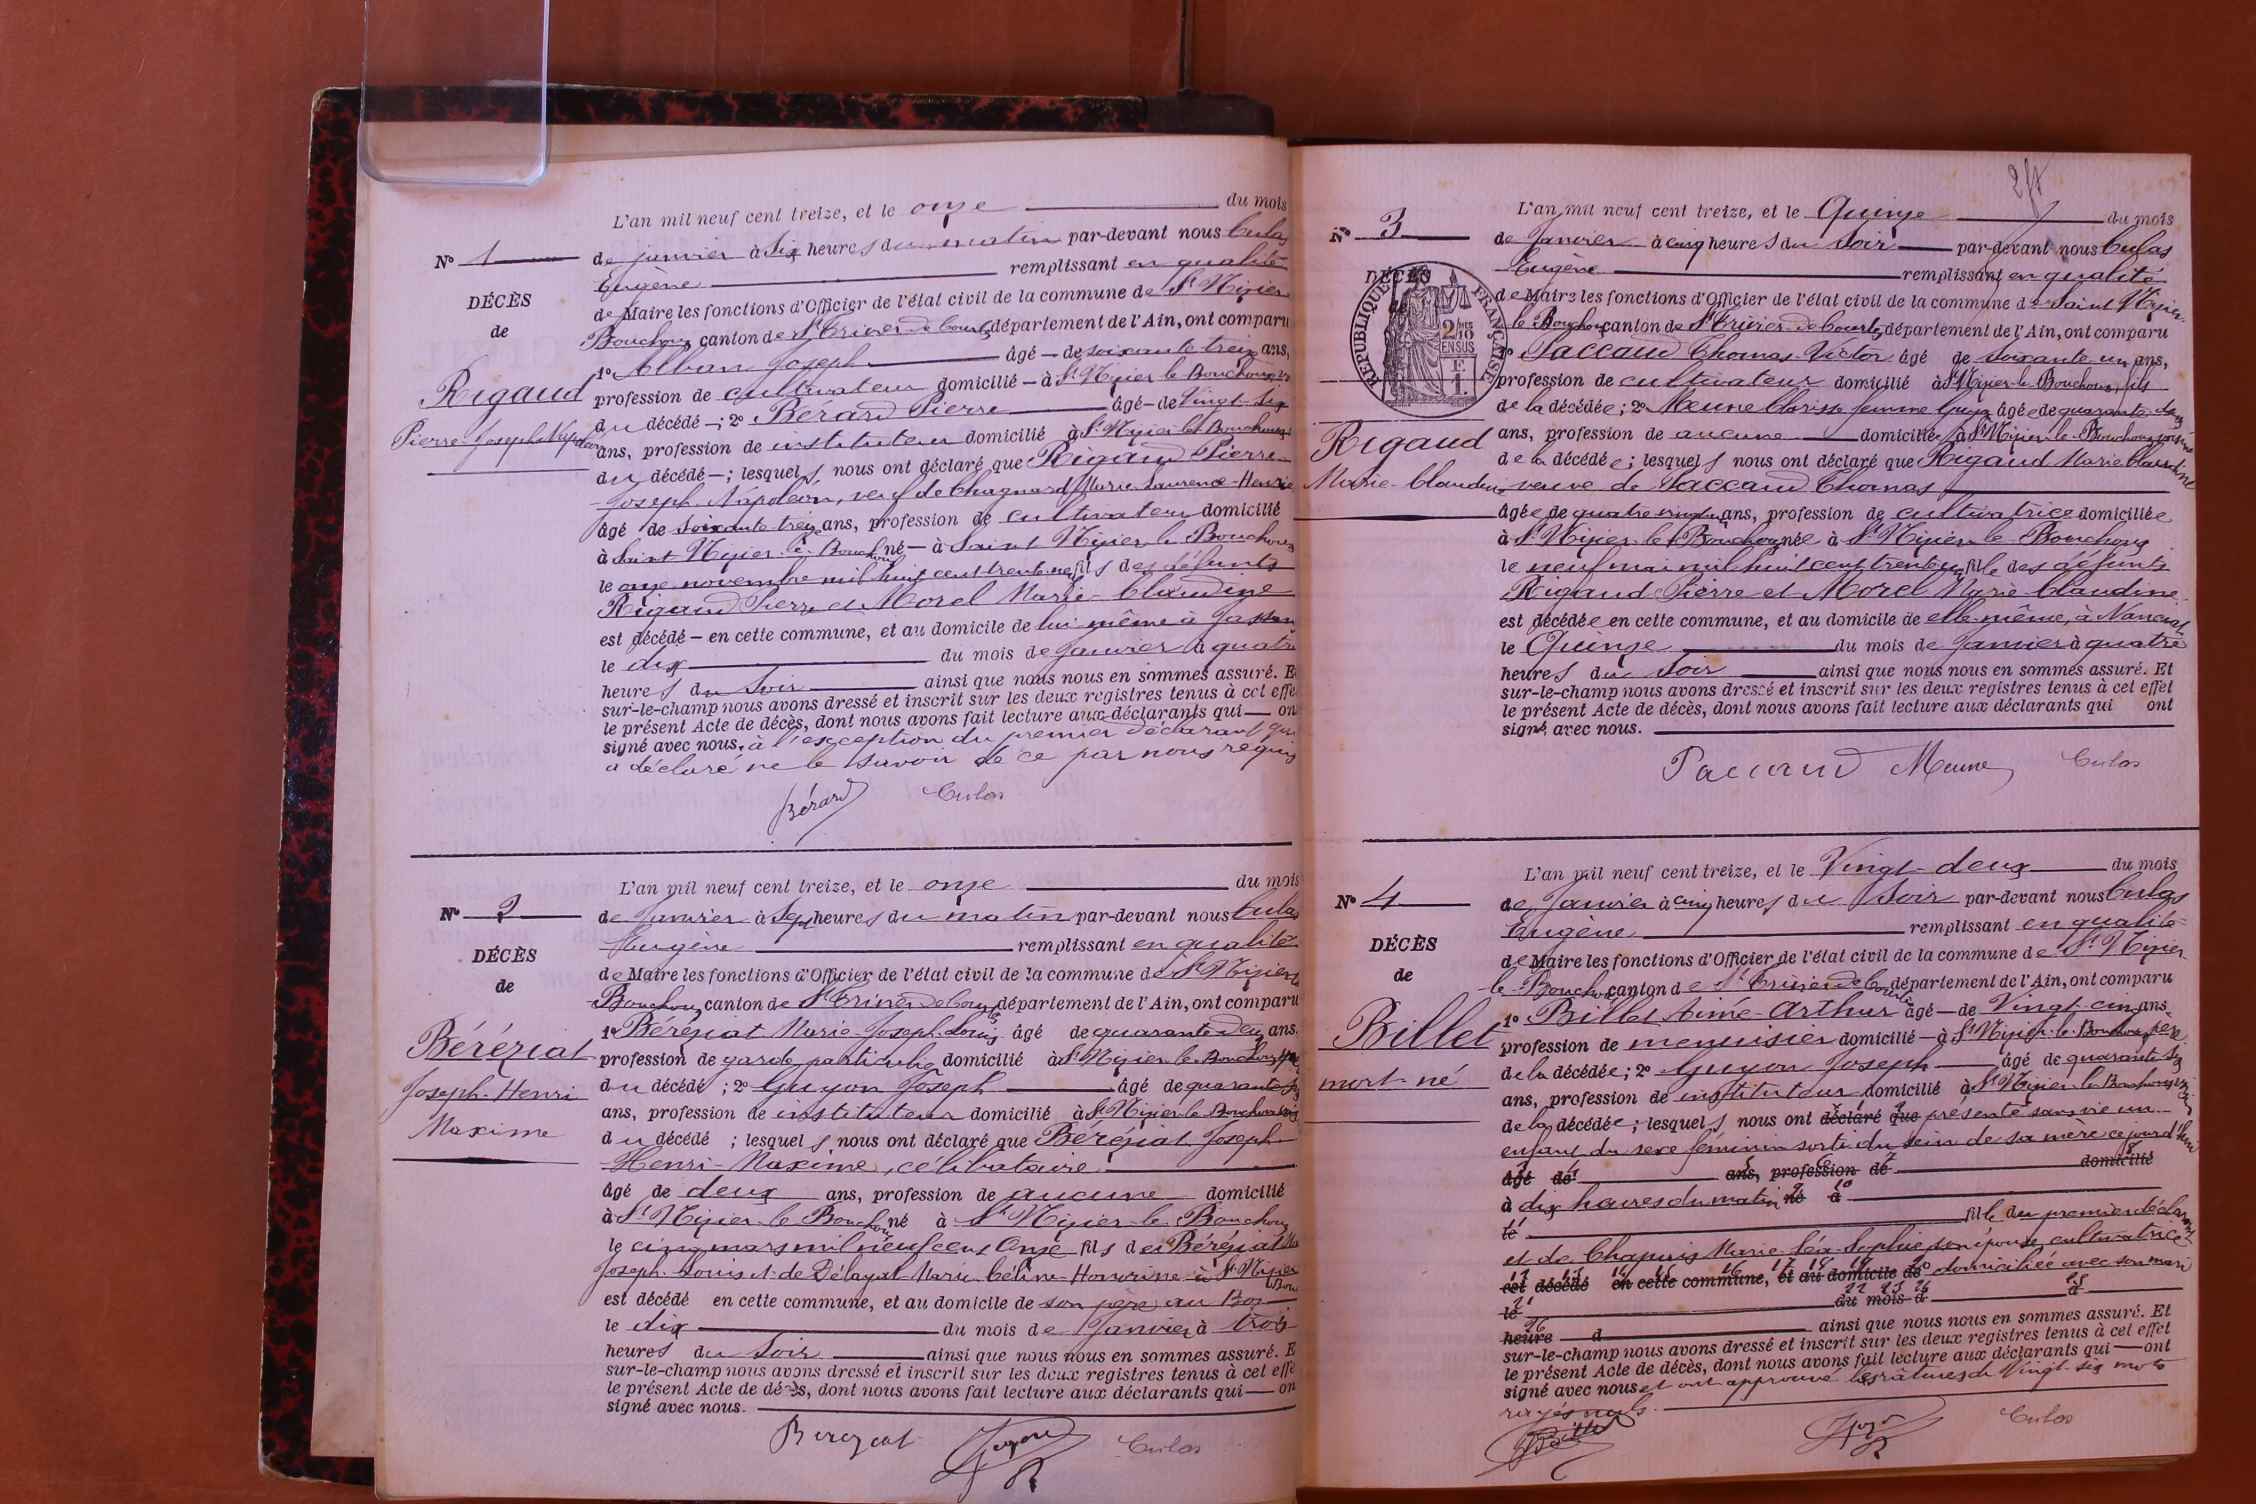 L'an mil neuf cent treize, et le onze du mois
N° 1
de janvier à six heures du matin par-devant nous Culas
Eugène remplissant en qualité
DÉCÈS
de Maire les fonctions d'Officier de l'état civil de la commune de St Nizier
de
Bouchoux canton de St Trivier-de-Courtes, département de l'Ain, ont comparu
1° Alban Joseph âgé de soixante treize ans,
Rigaud
profession de cultivateur domicilié à St Nizier le Bouchoux
du décédé ; 2° Bérard Pierre âgé de vingt-six
Pierre-Joseph-Napoléon
ans, profession de instituteur domicilié à St Nizier le Bouchoux
du décédé ; lesquels nous ont déclaré que Rigaud Pierre
Joseph Napoléon, veuf de Chagnard Marie Laurence-Henrie
âgé de soixante-treize ans, profession de cultivateur domicilié
à Saint Nizier-le-Bouchoux né à Saint Nizier le Bouchoux
le onze novembre mil huit cent trente neuf fils des défunts
Rigaud Pierre et Morel Marie-Claudine
est décédé en cette commune, et au domicile de lui même à
le dix du mois de janvier à quatre
heures du soir ainsi que nous nous en sommes assuré. E
sur-le-champ nous avons dressé et inscrit sur les deux registres tenus à cet effe
le présent Acte de décès, dont nous avons fait lecture aux déclarants qui on
signé avec nous, à l'exception du premier déclarant qui
a déclaré ne le savoir de ce par nous requis
Bérard Culas
L'an mil neuf cent treize, et le onze du mois
N° 2
de Janvier à sept heures du matin par-devant nous Culas
Eugène remplissant en qualité
DÉCÈS
de Maire les fonctions d'Officier de l'état civil de la commune de St Nizier le
de
Bouchoux canton de St Trivier de Courtes, département de l'Ain, ont comparu
1° Béréziat Marie-Joseph-Louis âgé de quarante deux ans.
Béréziat
profession de garde particulier domicilié à St Nizier le Bouchoux père
Joseph-Henri
du décédé ; 2° Guyon Joseph âgé de quarante six
ans, profession de instituteur domicilié à St Nizier le Bouchoux voisin
Maxime
du décédé ; lesquels nous ont déclaré que Béréziat Joseph
Henri-Maxime, célibataire
âgé de deux ans, profession de aucune domicilié
à St Nizier-le-Bouchoux né à St Nizier-le-Bouchoux
le cinq mars mil neuf cent onze fils de Béréziat Me
Joseph-Louis et de Délayat Marie Céline-Honorine à St Nizier
Bou
est décédé en cette commune, et au domicile de son père, au
le dix du mois de Janvier à trois
heures du soir ainsi que nous nous en sommes assuré. E
sur-le-champ nous avons dressé et inscrit sur les deux registres tenus à cet effe
le présent Acte de décès, dont nous avons fait lecture aux déclarants qui on
signé avec nous.
Bereziat Guyon Culas
L'an mil neuf cent treize, et le Quinze du mois
N° 3
de Janvier à cinq heures du soir par-devant nous Culas
Eugène remplissant en qualité
DÉCÈS
RÉPUBLIQUE FRANÇAISE
de Maire les fonctions d'Officier de l'état civil de la commune de Saint Nizier
le Bouchoux canton de St Trivier-de-Courtes, département de l'Ain, ont comparu
1° Paccaud Thomas Victor âgé de soixante un ans,
profession de cultivateur domicilié à St Nizier-le-Bouchoux, fils
de la décédée ; 2° Meune Clarisse femme Guyon âgée de quarante
Rigaud
ans, profession de aucune domiciliée à St Nizier-le-Bouchoux voisine
de la décédée ; lesquels nous ont déclaré que Rigaud Marie Claudine
Marie-Claudine
veuve de Paccaud Thomas
âgée de quatre vingt ans, profession de cultivatrice domiciliée
à St Nizier-le-Bouchoux née à St Nizier-le-Bouchoux
le neuf mai mil huit cent trente fille des défunts
Rigaud Pierre et Morel Marie-Claudine
est décédée en cette commune, et au domicile de elle-même, à
le Quinze du mois de Janvier à quatre
heures du soir ainsi que nous nous en sommes assuré. Et
sur-le-champ nous avons dressé et inscrit sur les deux registres tenus à cet effet
le présent Acte de décès, dont nous avons fait lecture aux déclarants qui ont
signé avec nous.
Paccaud Meune Culas
L'an mil neuf cent treize, et le Vingt-deux du mois
N° 4
de Janvier à cinq heures du soir par-devant nous Culas
Eugène remplissant en qualité
DÉCÈS
de Maire les fonctions d'Officier de l'état civil de la commune de St Nizier
de
le Bouchoux canton de St Trivier de Courtes département de l'Ain, ont comparu
1° Billet Aimé-Arthur âgé de Vingt-cinq ans
Billet
profession de menuisier domicilié à St Nizier-le-Bouchoux, père
de la décédée ; 2° Guyon Joseph âgé de quarante six
mort-né
ans, profession de instituteur domicilié à St Nizier-le-Bouchoux voisin
de la décédée ; lesquels nous ont déclaré que présenté sans vie un
enfant du sexe féminin sorti du sein de sa mère cejourd'hui
âgé de ans, profession de domicilié
à dix heures du matin né à
le fille du premier déclarant
et de Chapuis Marie-Léa-Sophie son épouse, cultivatrice
est décédé en cette commune, et au domicile de domiciliée avec son mari
le du mois d à
heure d ainsi que nous nous en sommes assuré. Et
sur-le-champ nous avons dressé et inscrit sur les deux registres tenus à cet effet
le présent Acte de décès, dont nous avons fait lecture aux déclarants qui ont
signé avec nous et ont approuvé les ratures de Vingt-six mots
rayés nuls.
Billet Guyon Culas